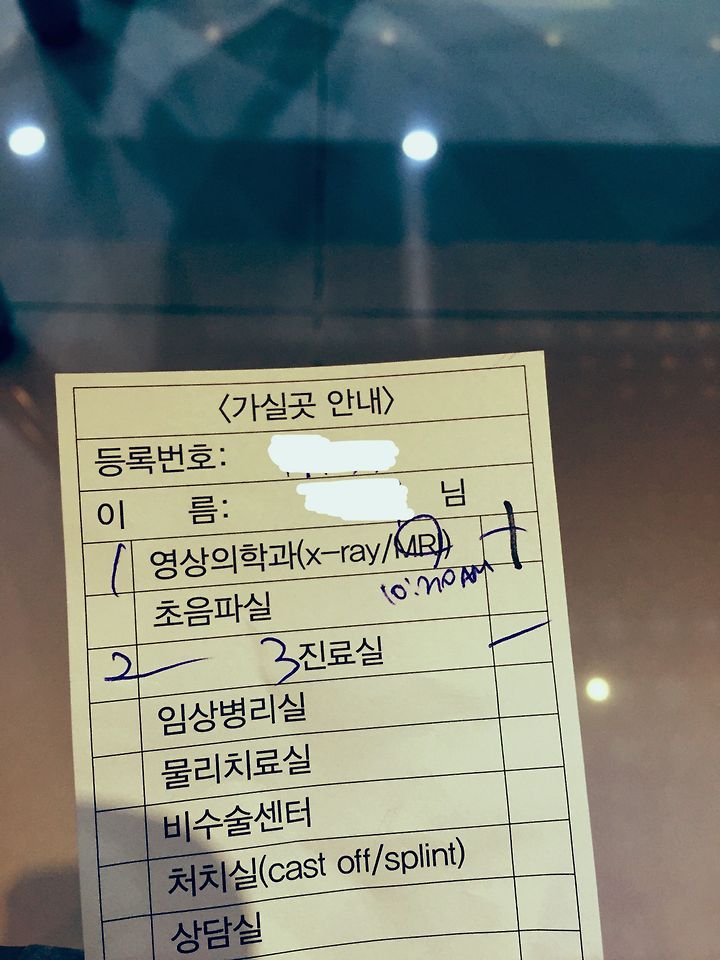 <가실곳 안내>
등록번호:
이 름: 님
1 영상의학과(x-ray/MRI)
초음파실 10:20AM
2 3진료실
임상병리실
물리치료실
비수술센터
처치실(cast off/splint)
상담실